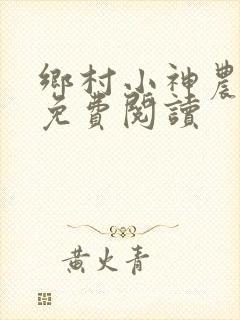 鄉村小神農
免費閱讀
黃火青